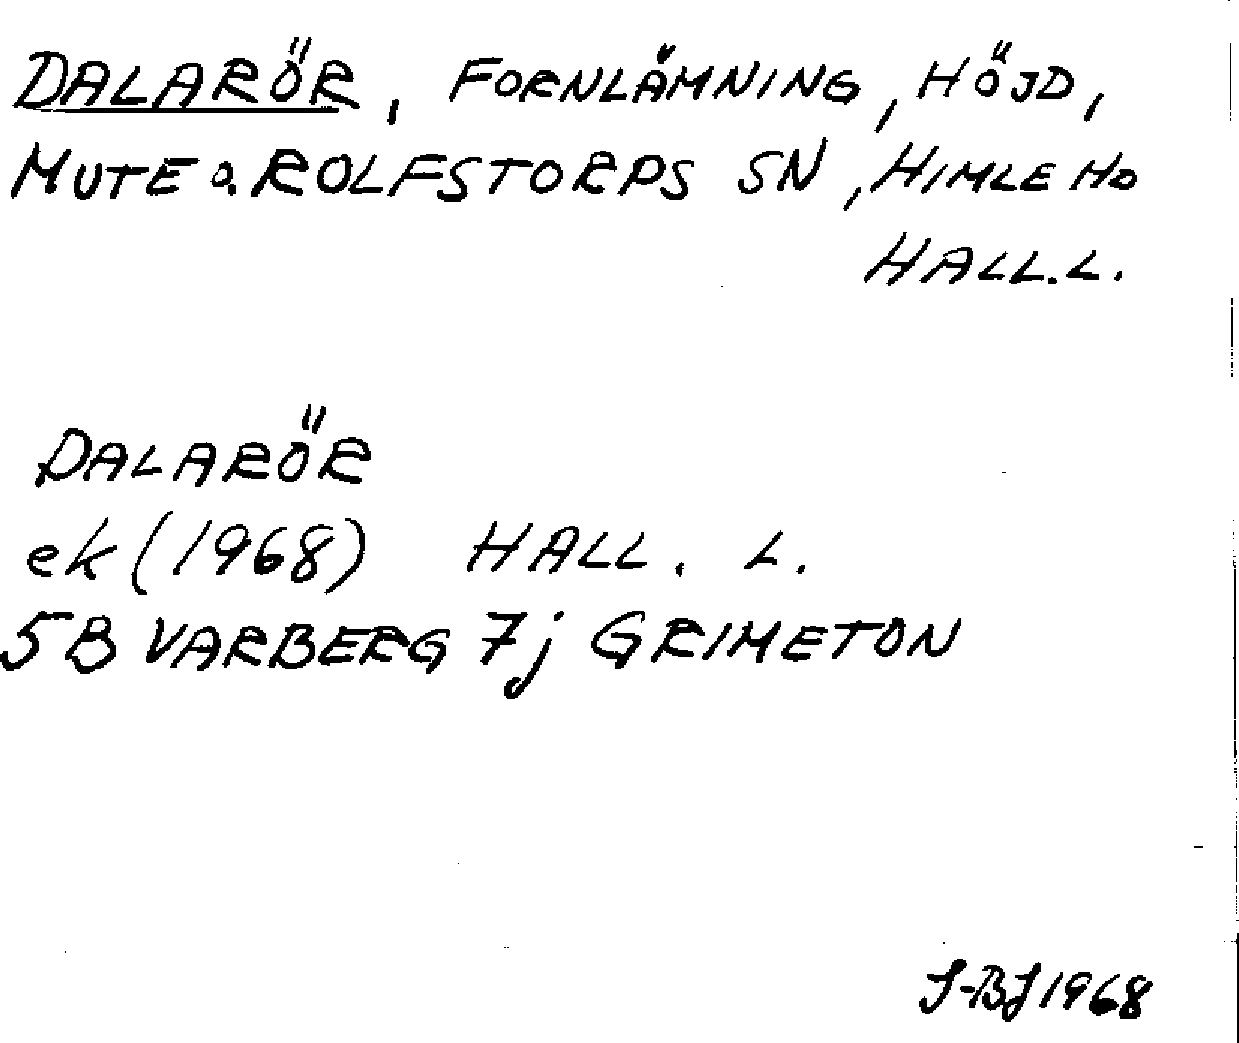 DALARÖR, FORNLÄMNING, HÖJD,
MUTE o. ROLFSTORPS SN, HIMLE HD
HALL. L.
DALARÖR
ek (1968) HALL. L.
5B VARBERG 7j GRIMETON
J-BJ 1968